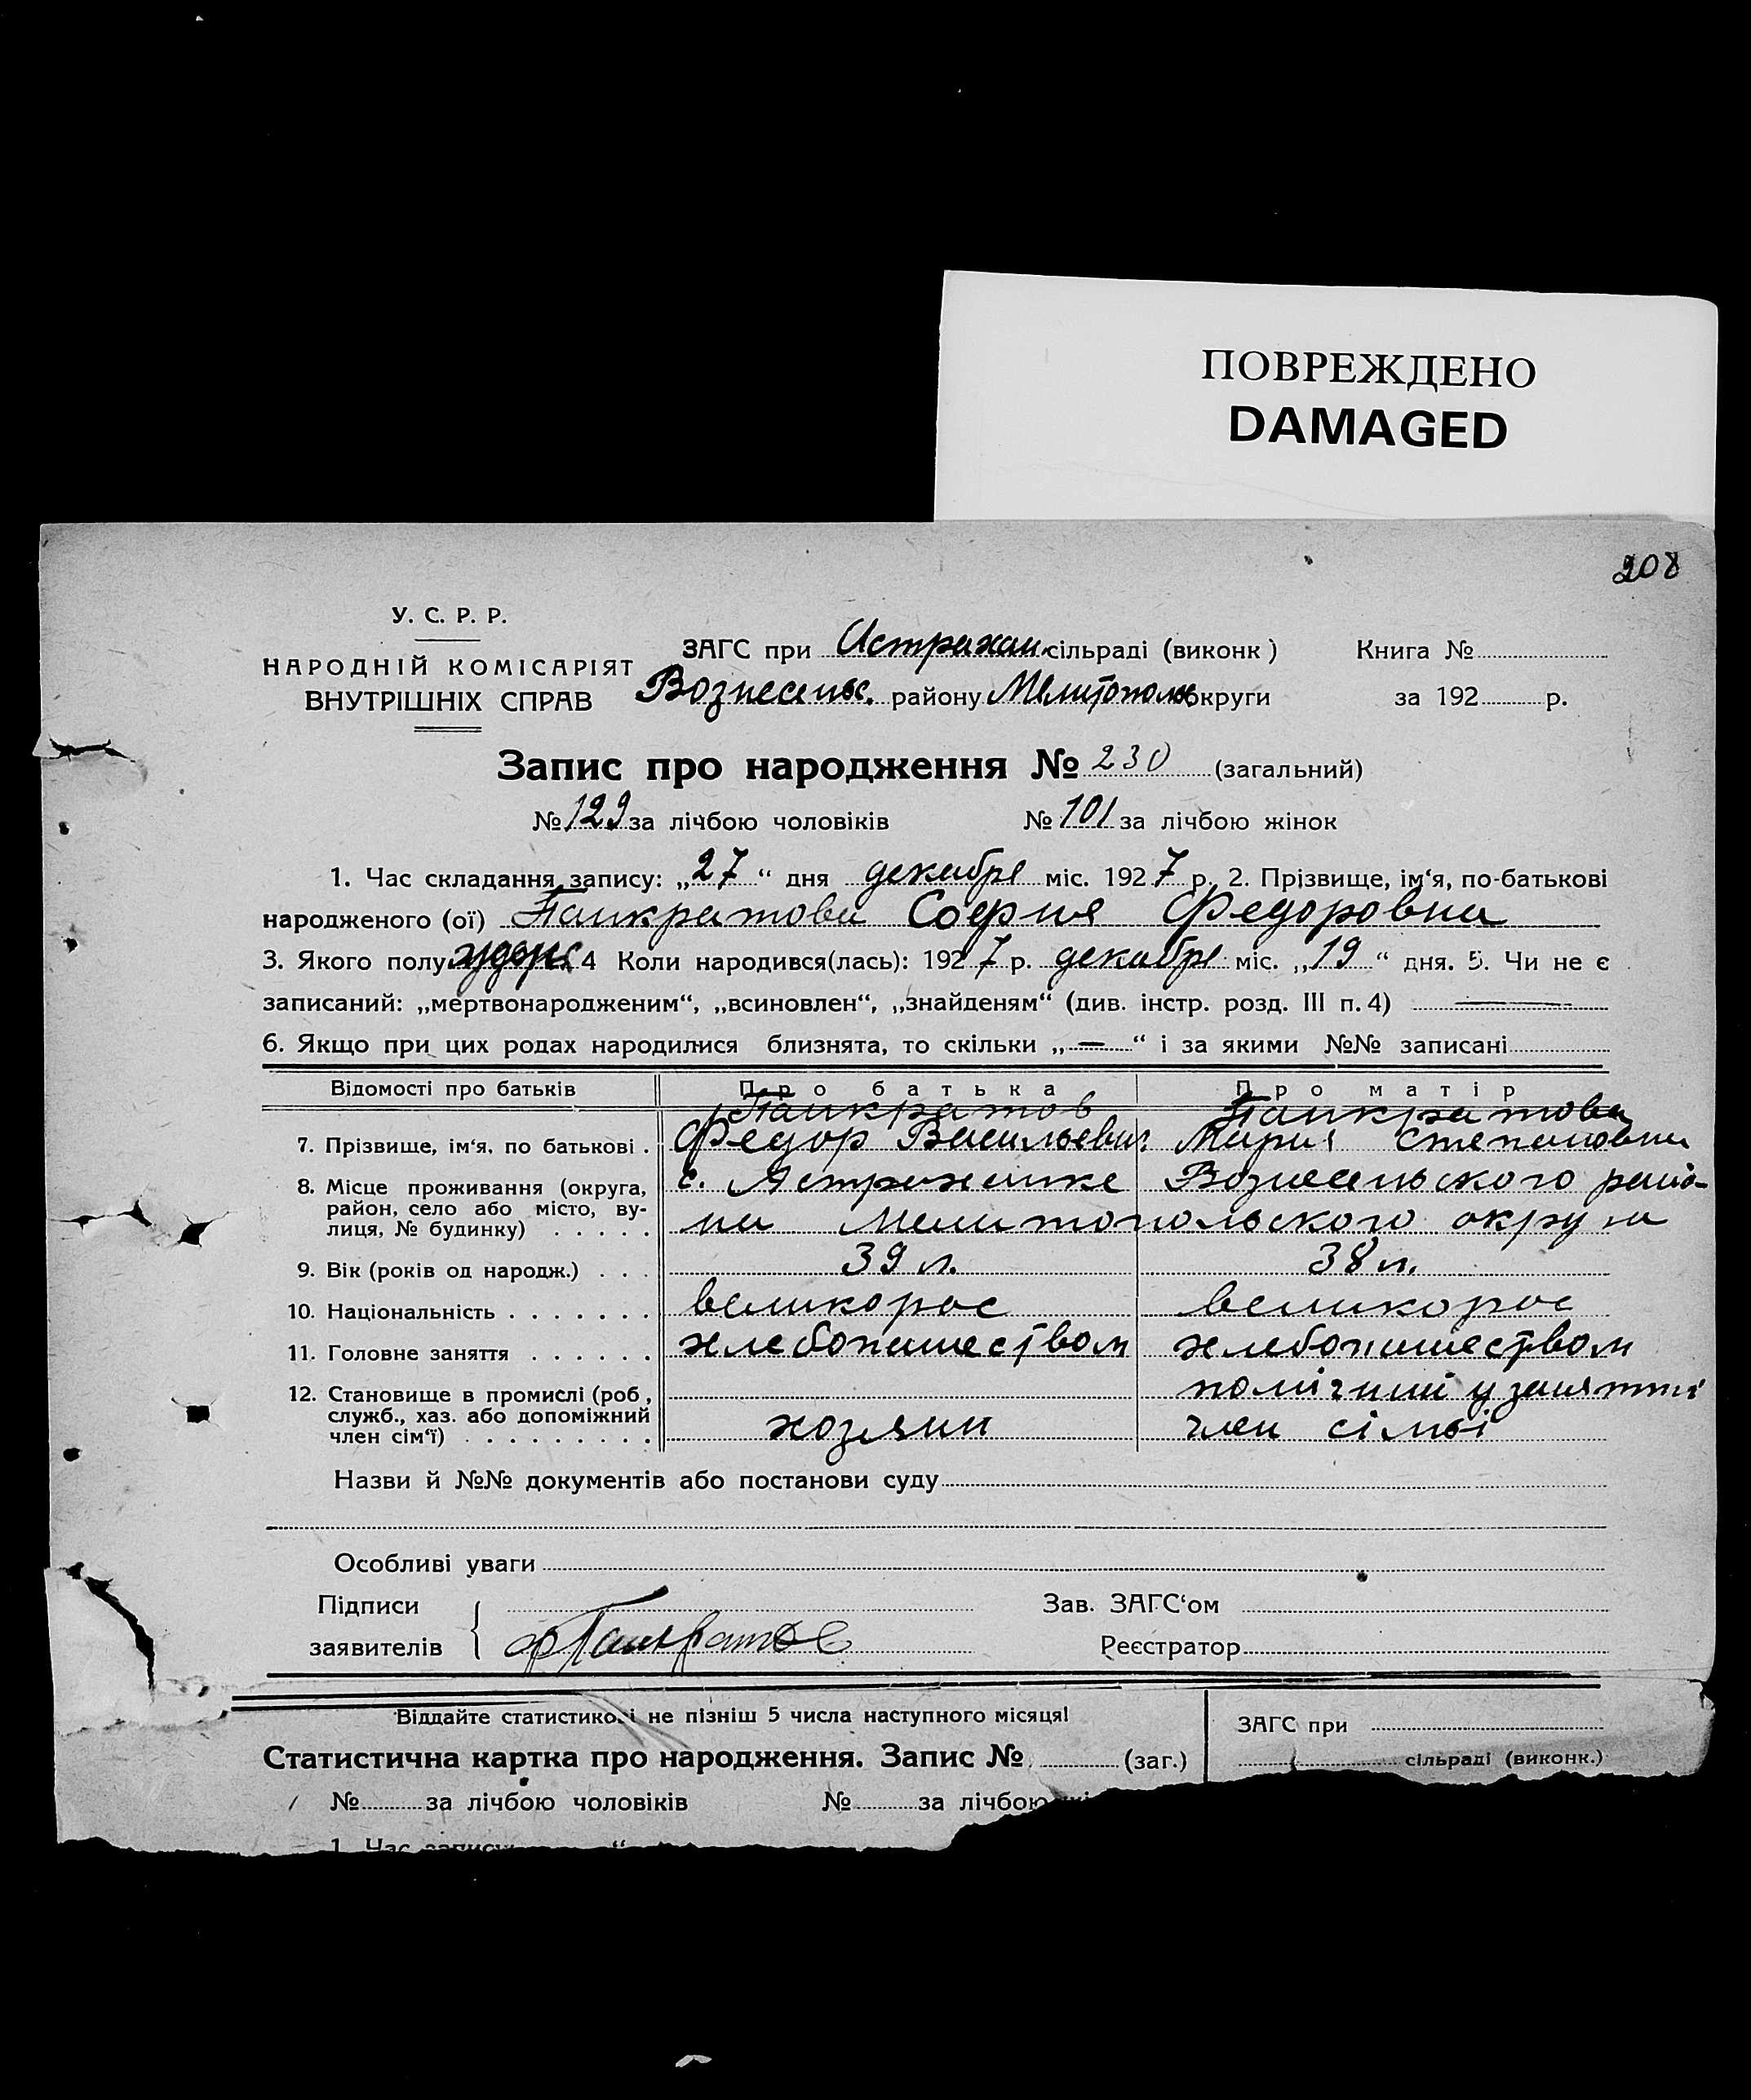 ПОВРЕЖДЕНО
DAMAGED
208
У. С. Р. Р.
НАРОДНІЙ КОМІСАРІЯТ
ВНУТРІШНІХ СПРАВ
ЗАГС при Астрахан. сільраді (виконк)
Вознесенс. району Мелитополь. округи
Книга №
за 192 р.
Запис про народження № 230 (загальний)
№ 129 за лічбою чоловіків № 101 за лічбою жінок
1. Час складання запису: „27“ дня декабре міс. 1927 р. 2. Прізвище, ім‘я, по-батькові
народженого (ої) Панкратова София Федоровна
3. Якого полу 4 Коли народився(лась): 1927 р. декабре міс. „19“ дня. 5. Чи не є
записаний: „мертвонародженим“, „всиновлен“, „знайденям“ (див. інстр. розд. III п. 4) —
6. Якщо при цих родах народилися близнята, то скільки „—“ і за якими №№ записані
Відомості про батьків Про батька Про матір
Панкратов Панкратова
7. Прізвище, ім‘я, по батькові . Федор Васильевич Мария Степановна
8. Місце проживання (округа, с. Астраханке Вознесенського райо-
район, село або місто, ву-
лиця, № будинку) . . . . . на Мелитопольского округа
9. Вік (років од народж.) . . . 39 л. 38 л.
10. Національність . . . . . . . великорос великорос
11. Головне заняття . . . . . . хлебопашеством хлебопашеством
12. Становище в промислі (роб, у заняттї
служб., хаз. або допоміжний
член сім‘ї) . . . . . . . . . хозяин член сімьі
Назви й №№ документів або постанови суду
Особливі уваги
Підписи Зав. ЗАГС‘ом
заявителів ФПанкратов Реєстратор
Віддайте статистикові не пізніш 5 числа наступного місяця!
ЗАГС при
Статистична картка про народження. Запис № (заг.)
сільраді (виконк.)
№ за лічбою чоловіків № за лічбою
1. Час запису “